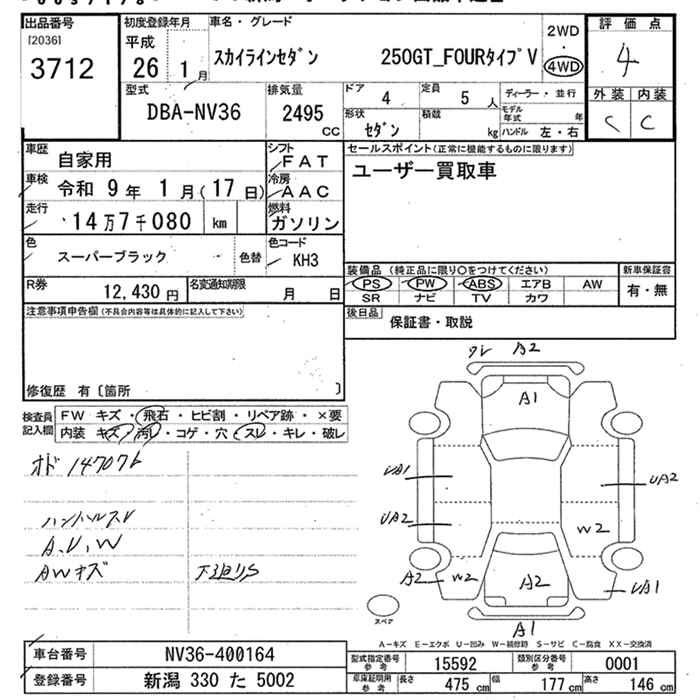 出品番号
[2036]
3712
初度登録年月
平成
26 1月
車名・グレード
スカイラインセダン 250GT_FOURタイプV
2WD
・
4WD
評価点
4
外装 内装
C C
型式
DBA-NV36
排気量
2495
CC
ドア
4
定員
5 人
形状
セダン
積載
kg
ディーラー・並行
モデル年式 年
ハンドル 左・右
車歴
自家用
車検
令和 9年 1月(17日)
走行
14万7千080 km
シフト
FAT
冷房
AAC
燃料
ガソリン
色
スーパーブラック
色替
色コード
KH3
R券
12,430円
名変通知期限
月 日
セールスポイント(正常に機能するものに限ります)
ユーザー買取車
装備品(純正品に限り○をつけてください)
PS PW ABS エアB AW
SR ナビ TV カワ
新車保証書
有・無
後日品
保証書・取説
注意事項申告欄(不具合内容等は具体的に記入して下さい)
修復歴 有〔箇所 〕
検査員記入欄
FW キズ・飛石・ヒビ割・リペア跡・×要
内装 キズ・汚レ・コゲ・穴・スレ・キレ・破レ
オド 14707k
ハンドルスレ
A.U.W
AWキズ
下廻りS
クレ A2
A1
UA1
UA2
UA2
W2
A2
W2
A2
UA1
A1
スペア
A-キズ E-エクボ U-凹み W-補修跡 S-サビ C-腐食 XX-交換済
車台番号
NV36-400164
登録番号
新潟 330 た 5002
型式指定番号
参考
15592
類別区分番号
参考
0001
車庫証明用
参考
長さ
475 cm
幅
177 cm
高さ
146 cm